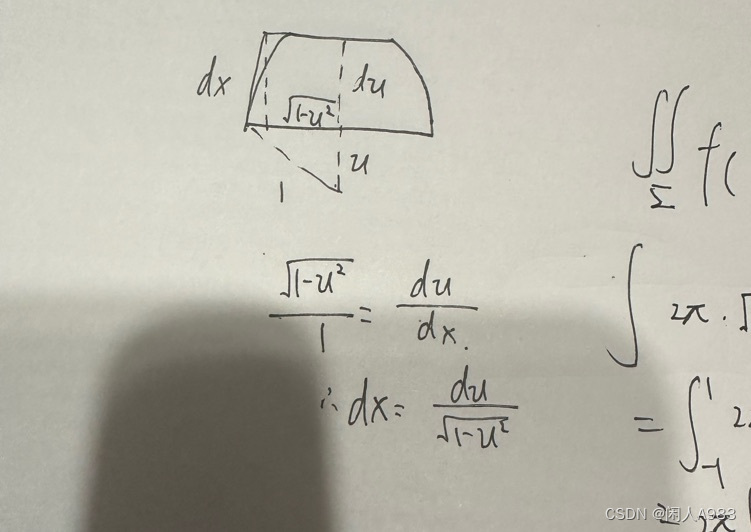 dx
du
√(1-u²)
u
1
∬_Σ f(
√(1-u²)/1 = du/dx.
∫ 2π·√
∴ dx = du/√(1-u²)
= ∫_{-1}^{1} 2
= 2π
CSDN @闲人A983